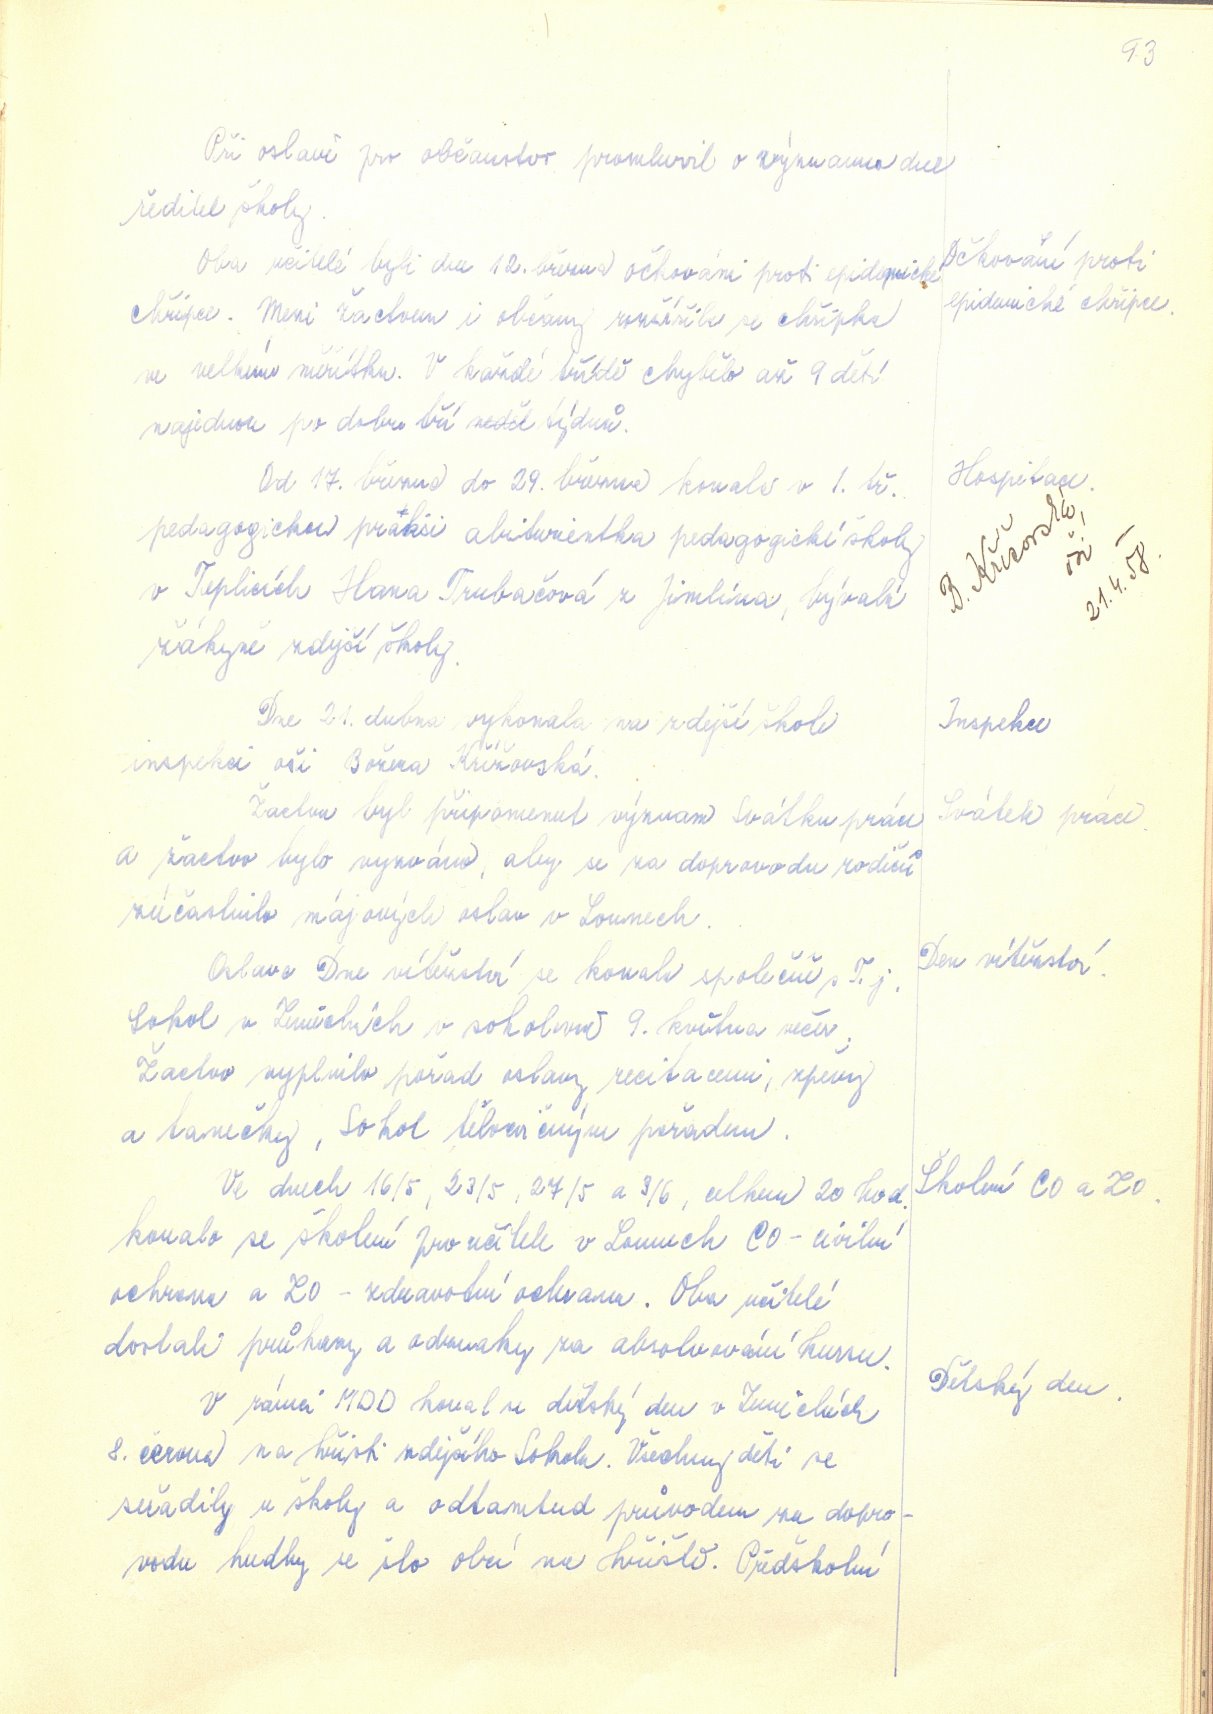 93
Při oslavě pro občanstvo promluvil o významu dne
ředitel školy.
Oba učitelé byli dne 12. března očkováni proti epidemické
Očkování proti
epidemické chřipce.
chřipce. Mezi žactvem i občany rozšířila se chřipka
ve velkém měřítku. V každé třídě chybělo až 9 dětí
najednou po dobu tří neděl týdnů.
Od 17. března do 29. března konala v 1. tř.
Hospitace.
pedagogickou praksi abiturientka pedagogické školy
v Teplicích Hana Trubačová z Jimlína, bývalá
žákyně zdejší školy.
B. Křižovská,
oši
21.4.58.
Dne 21. dubna vykonala na zdejší škole
Inspekce
inspekci oši Božena Křižovská.
Žactvu byl připomenut význam Svátku práce
Svátek práce.
a žactvo bylo vyzváno, aby se za doprovodu rodičů
zúčastnilo májových oslav v Lounech.
Oslava Dne vítězství se konala společně s T. j.
Den vítězství.
Sokol v Zeměchách v sokolovně 9. května večer.
Žactvo vyplnilo pořad oslavy recitacemi, zpěvy
a tanečky, Sokol tělocvičným pořadem.
Ve dnech 16/5, 23/5, 27/5 a 3/6, celkem 20 hod.
Školení CO a ZO.
konalo se školení pro učitele v Lounech CO - civilní
ochrana a ZO - zdravotní ochrana. Oba učitelé
dostali průkazy a odznaky za absolvování kursu.
V rámci MDD konal se dětský den v Zeměchách
Dětský den.
8. června na hřišti zdejšího Sokola. Všechny děti se
seřadily u školy a odtamtud průvodem za dopro-
vodu hudby se šlo obcí na hřiště. Předškolní